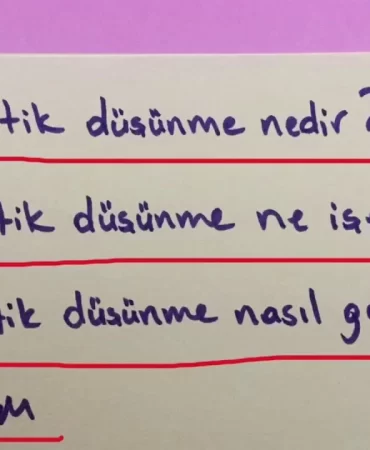 tik düşünme nedir ?
tik düşünme ne işe
tik düşünme nasıl ge
m